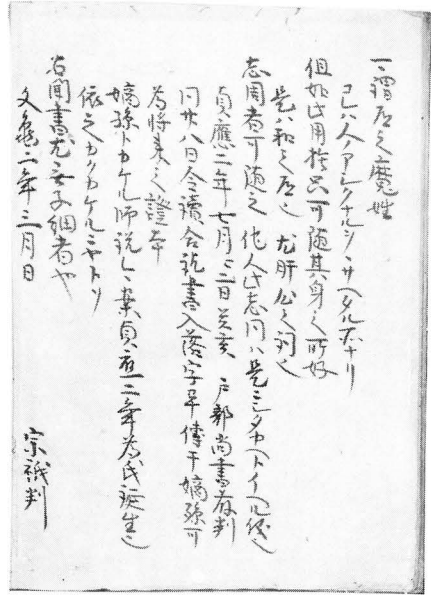 可謂道之魔姓
コレハ人ノアシクナル サヘタル尤ナリ
但如此用捨只可随其身之所好
是ハ和之道也 尤肝心之詞也
志同者可随之 他人此志同ハ是ニシタカヘトイヘル儀也
貞應二年七月廿二日癸亥 戸部尚書藤判
同廿八日令讀合訖書入落字畢傳于嫡孫可
為将来之證本
嫡孫トカケル師説云案貞應二年為氏誕生也
依之カクカケルニヤトソ
右聞書尤無子細者也
文龜二年三月日
宗祇判